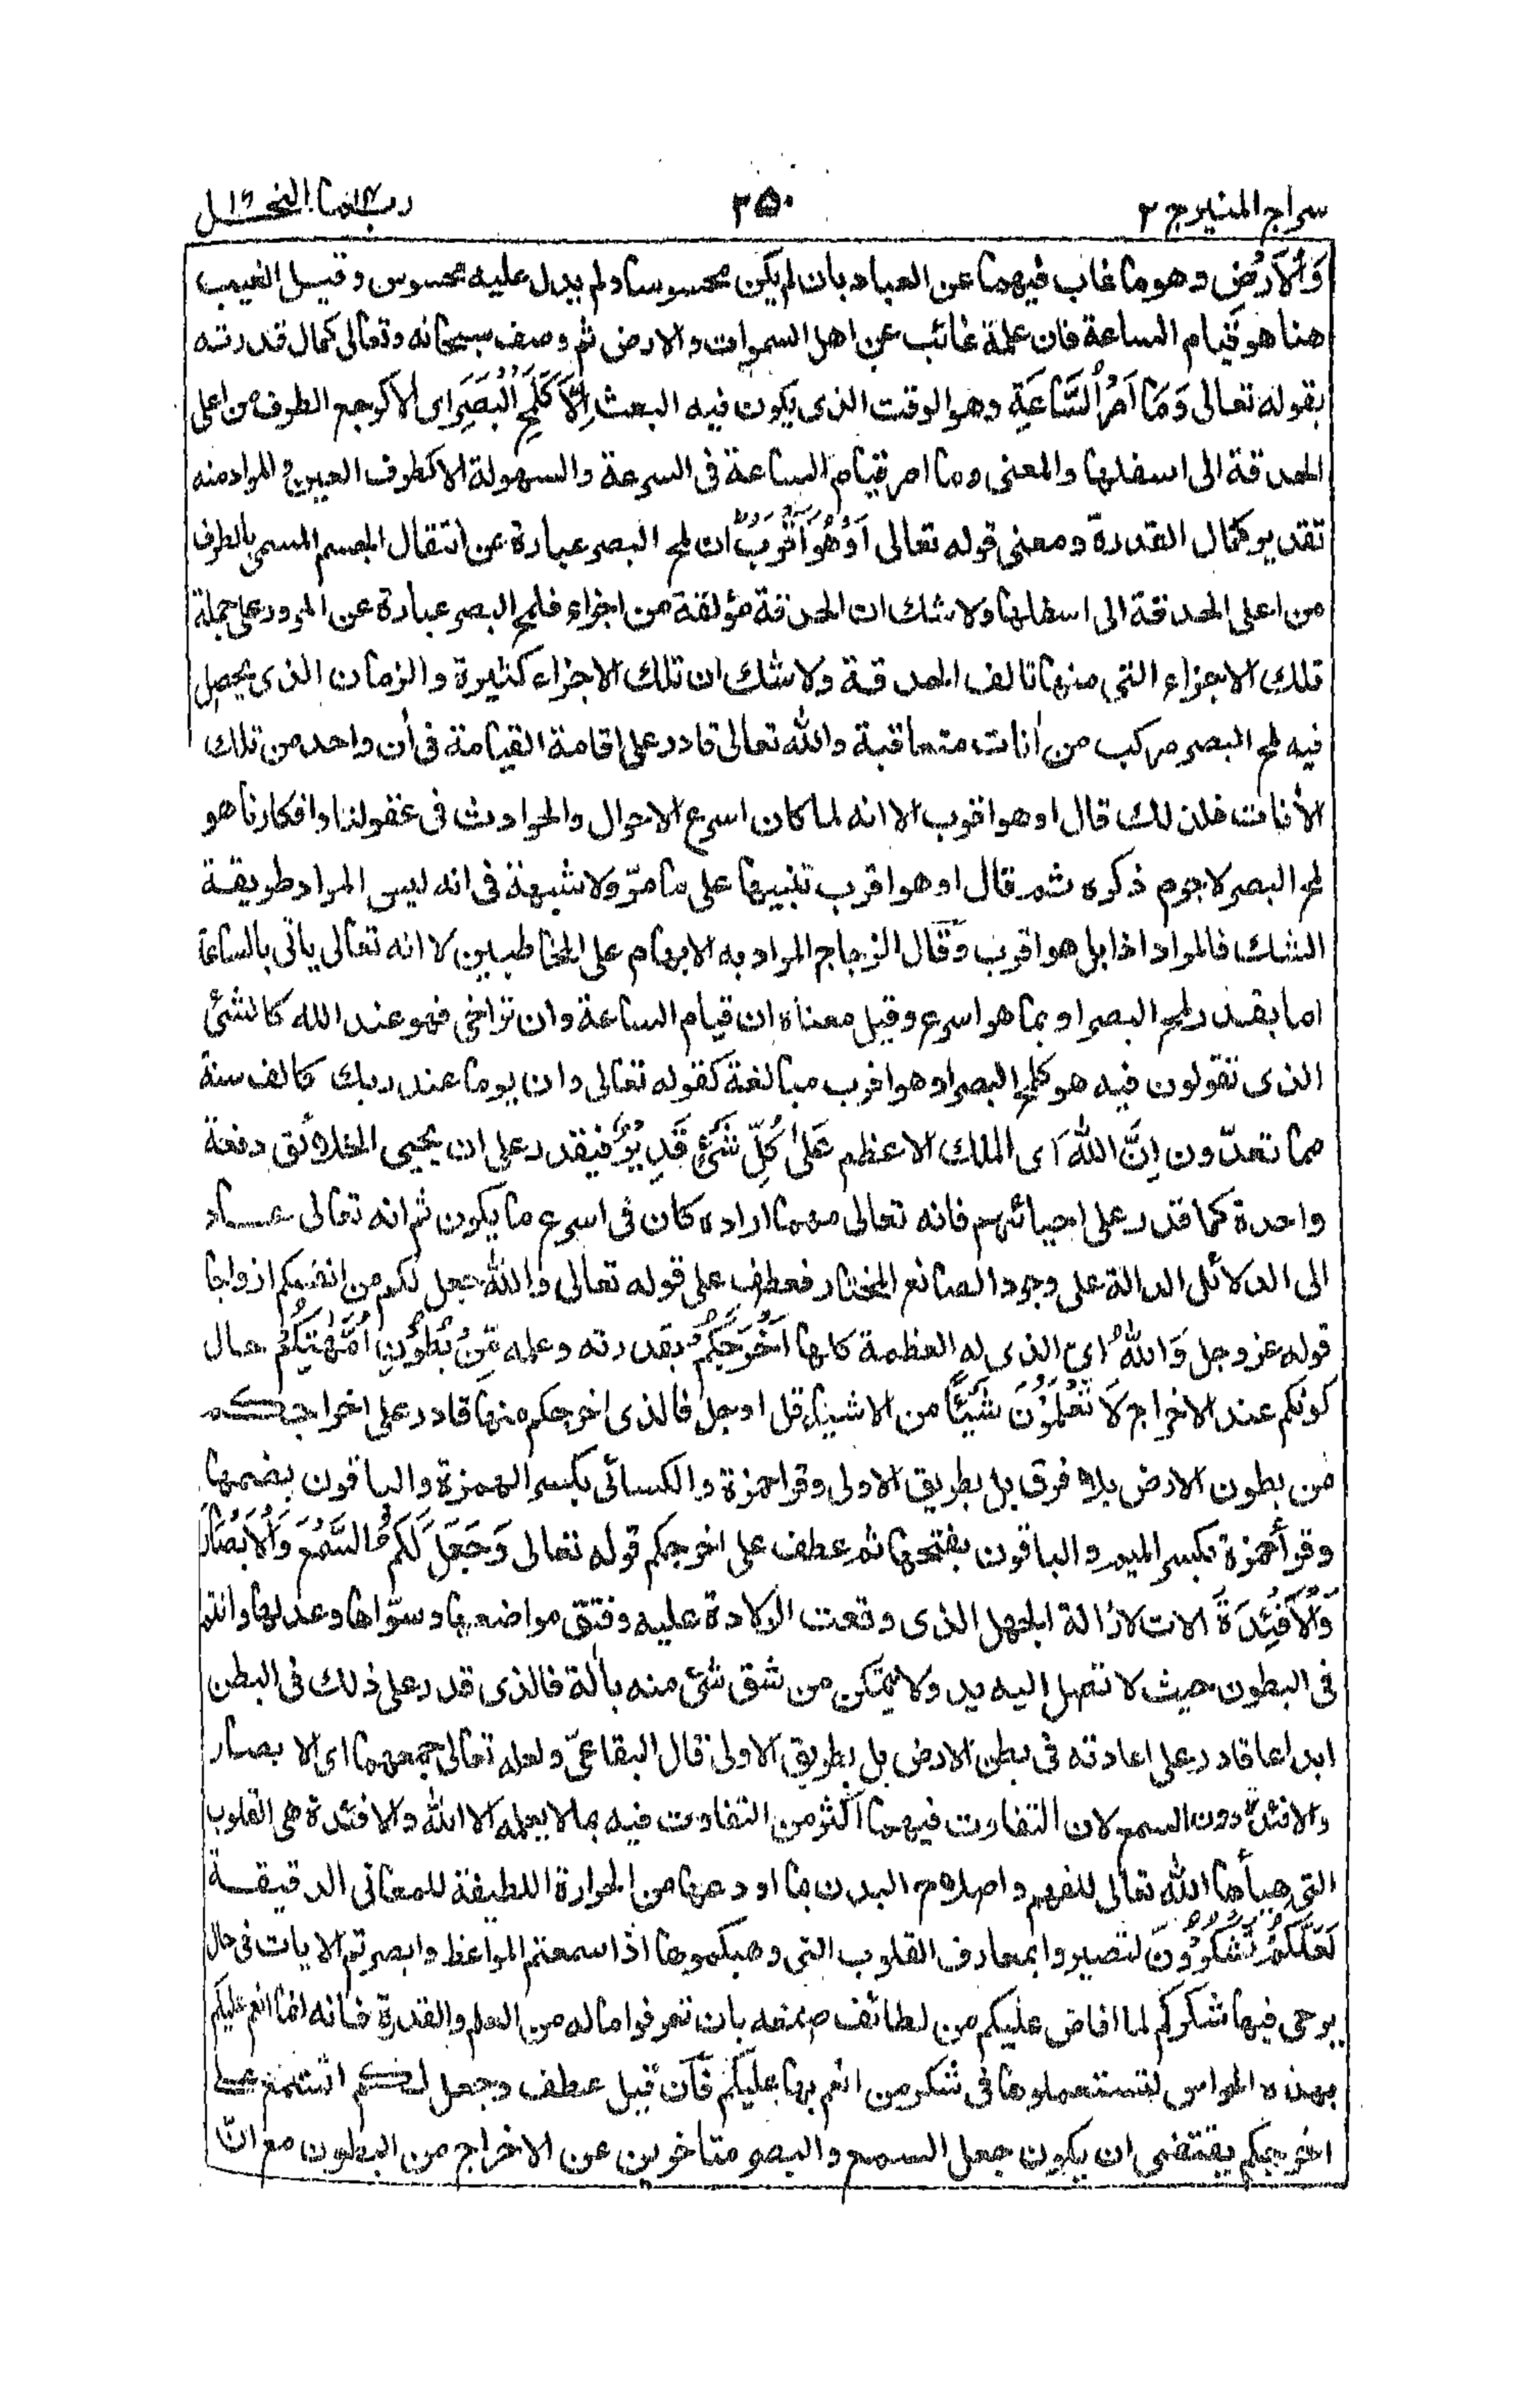 سراج المنير ج ٢ ٢٥٠ ربما ١٤ النحل ١٦
وَالْاَرْضِ وهو ما غاب فيهما عن العباد بان لم يكن محسوسا ولم يدل عليه محسوس وقيل الغيب
هنا هو قيام الساعة فان علمه غائب عن اهل السموات والارض ثم وصف سبحانه وتعالى كمال قدرته
بقوله تعالى وَمَا اَمْرُ السَّاعَةِ وهو الوقت الذى يكون فيه البعث اِلَّا كَلَمْحِ الْبَصَرِ اى الا كرجع الطرف من اعلى
الحدقة الى اسفلها والمعنى وما امر قيام الساعة فى السرعة والسهولة الا كطرف العين والمراد منه
تقدير كمال القدرة ومعنى قوله تعالى اَوْ هُوَ اَقْرَبُ ان لمح البصر عبارة عن انتقال الجسم المسمى بالطرف
من اعلى الحدقة الى اسفلها ولا شك ان الحدقة مؤلفة من اجزاء فلمح البصر عبارة عن المرور على جملة
تلك الاجزاء التى منها تالف الحدقة ولا شك ان تلك الاجزاء كثيرة والزمان الذى يحصل
فيه لمح البصر مركب من اٰنات متعاقبة والله تعالى قادر على اقامة القيامة فى اٰن واحد من تلك
الاٰنات فلذلك قال او هو اقرب الا انه لما كان اسرع الاحوال والحوادث فى عقولنا وافكارنا هو
لمح البصر لاجرم ذكره ثم قال او هو اقرب تنبيها على ما مرّ ولا شبهة فى انه ليس المراد طريقة
الشك فالمراد اذا بل هو اقرب وقال الزجاج المراد به الابهام على المخاطبين لا انه تعالى ياتى بالساعة
اما بقدر لمح البصر او بما هو اسرع وقيل معناه ان قيام الساعة وان تراخى فهو عند الله كالشئ
الذى تقولون فيه هو كلمح البصر او هو اقرب مبالغة كقوله تعالى وان يوما عند ربك كالف سنة
مما تعدّون اِنَّ اللهَ اى الملك الاعظم عَلٰى كُلِّ شَيْءٍ قَدِيْرٌ فيقدر على ان يحيى الخلائق دفعة
واحدة كما قدر على احيائهم فانه تعالى مهما اراده كان فى اسرع ما يكون ثم انه تعالى عاد
الى الدلائل الدالة على وجود الصانع المختار فعطف على قوله تعالى والله جعل لكم من انفسكم ازواجا
قوله عز وجل وَاللهُ اى الذى له العظمة كلها اَخْرَجَكُمْ بقدرته وعلمه مِنْ بُطُوْنِ اُمَّهٰتِكُمْ حال
كونكم عند الاخراج لَا تَعْلَمُوْنَ شَيْئًا من الاشياء قل او جل فالذى اخرجكم منها قادر على اخراجكم
من بطون الارض بلا فرق بل بطريق الاولى وقرا حمزة والكسائى بكسر الهمزة والباقون بضمها
وقرأ حمزة بكسر الميم والباقون بفتحها ثم عطف على اخرجكم قوله تعالى وَجَعَلَ لَكُمُ السَّمْعَ وَالْاَبْصَارَ
وَالْاَفْئِدَةَ الات لازالة الجهل الذى وقعت الولادة عليه وفتق مواضعها وسوّاها وعدلها وانتم
فى البطون حيث لا تصل اليه يد ولا يتمكن من شق شئ منه بالة فالذى قدر على ذلك فى البطن
ابداعا قادر على اعادته فى بطن الارض بل بطريق الاولى قال البقاعىّ ولعله تعالى جمعهما اى الابصار
والافئدة دون السمع لان التفاوت فيهما اكثر من التفاوت فيه بما لا يعلمه الا الله والافئدة هى القلوب
التى هيأها الله تعالى للفهم واصلاح البدن بما اودعها من الحرارة اللطيفة للمعانى الدقيقة
لَعَلَّكُمْ تَشْكُرُوْنَ لتصيروا بمعارف القلوب التى وهبكموها اذا سمعتم المواعظ وابصرتم الايات فى حال
يرجى فيها شكركم لما افاض عليكم من لطائف صنعه بان تعرفوا ماله من العلم والقدرة فانه انما انعم عليكم
بهذه الحواس لتستعملوها فى شكر من انعم بها عليكم فان قيل عطف وجعل لكم السمع على
اخرجكم يقتضى ان يكون جعل السمع والبصر متاخرين عن الاخراج من البطون مع انّ